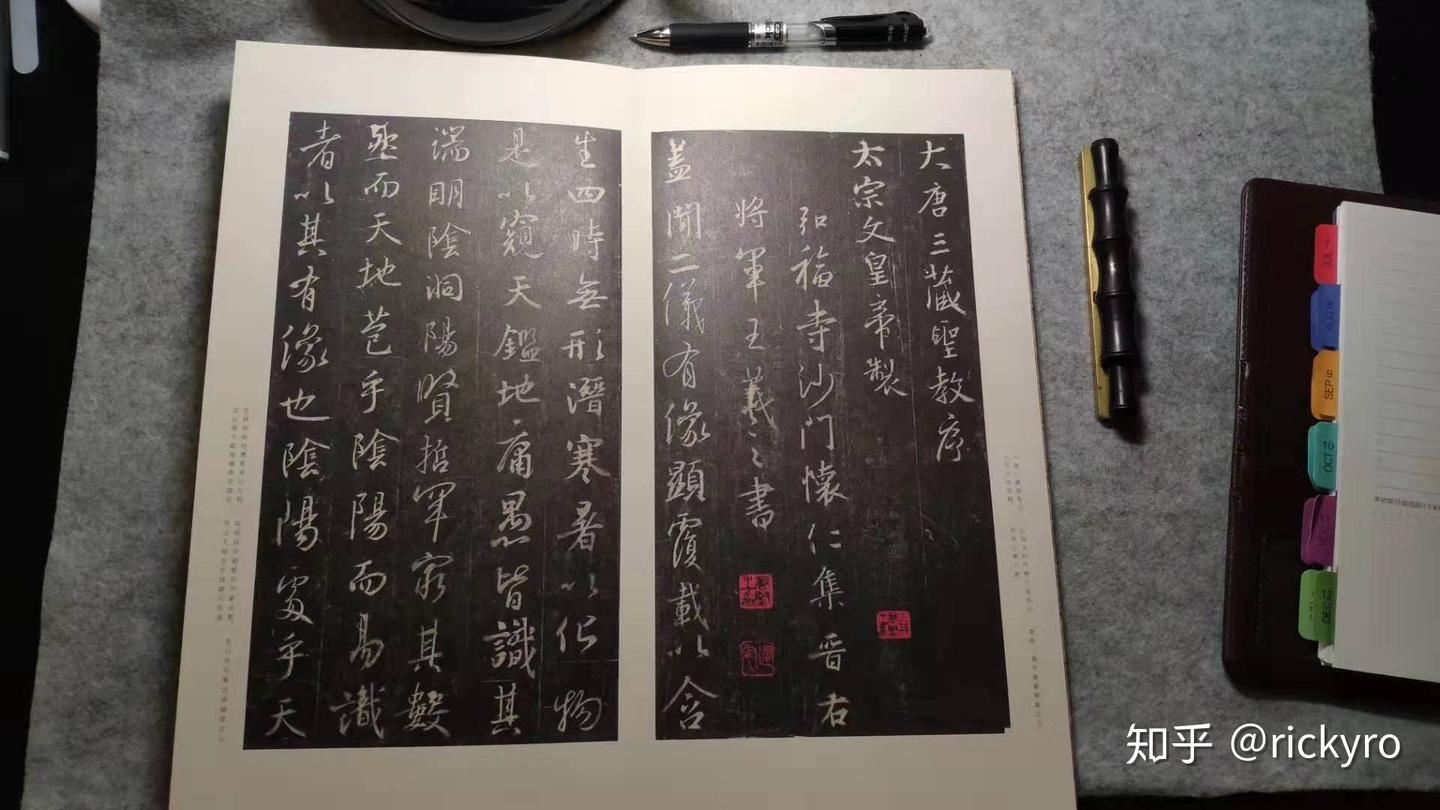 大唐三藏聖教序
太宗文皇帝製
弘福寺沙門懷仁集晉右
將軍王羲之書
蓋聞二儀有像顯覆載以含
生四時無形潛寒暑以化物
是以窺天鑑地庸愚皆識其
端明陰洞陽賢哲罕窮其數
然而天地苞乎陰陽而易識
者以其有像也陰陽處乎天
JUL
SEP 9
OCT 10
NOV 11
12 DEC
知乎 @rickyro